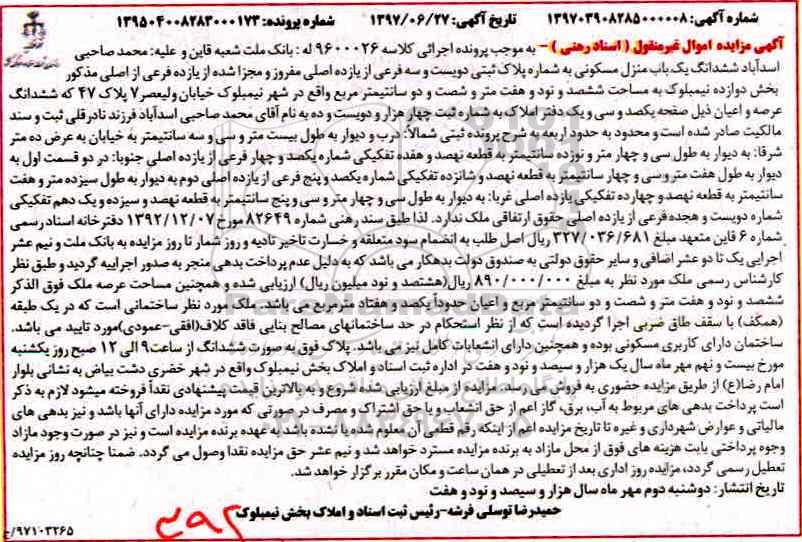 شماره آگهی: ۱۳۹۷۰۳۹۰۸۲۸۵۰۰۰۰۰۸ تاریخ آگهی: ۱۳۹۷/۰۶/۲۷ شماره پرونده: ۱۳۹۵۰۴۰۰۸۲۸۳۰۰۰۱۷۳
آگهی مزایده اموال غیرمنقول (اسناد رهنی) - به موجب پرونده اجرائی کلاسه ۹۶۰۰۰۲۶ له : بانک ملت شعبه قاین و علیه: محمد صاحبی
اسدآباد ششدانگ یک باب منزل مسکونی به شماره پلاک ثبتی دویست و سه فرعی از یازده اصلی مفروز و مجزا شده از یازده فرعی از اصلی مذکور
بخش دوازده نیمبلوک به مساحت ششصد و نود و هفت متر و شصت و دو سانتیمتر مربع واقع در شهر نیمبلوک خیابان ولیعصر۷ پلاک ۴۷ که ششدانگ
عرصه و اعیان ذیل صفحه یکصد و سی و یک دفتر املاک به شماره ثبت چهار هزار و دویست و ده به نام آقای محمد صاحبی اسدآباد فرزند نادرقلی ثبت و سند
مالکیت صادر شده است و محدود به حدود اربعه به شرح پرونده ثبتی شمالاً: درب و دیوار به طول بیست متر و سی و سه سانتیمتر به خیابان به عرض ده متر
شرقا: به دیوار به طول سی و چهار متر و نوزده سانتیمتر به قطعه نهصد و هفده تفکیکی شماره یکصد و چهار فرعی از یازده اصلی جنوبا: در دو قسمت اول به
دیوار به طول هفت متر و سی و چهار سانتیمتر به قطعه نهصد و شانزده تفکیکی شماره یکصد و پنج فرعی از یازده اصلی دوم به دیوار به طول سیزده متر و هفت
سانتیمتر به قطعه نهصد و چهارده تفکیکی یازده اصلی غربا: به دیوار به طول سی و چهار متر و سی و پنج سانتیمتر به قطعه نهصد و سیزده و یک دهم تفکیکی
شماره دویست و هجده فرعی از یازده اصلی حقوق ارتفاقی ملک ندارد. لذا طبق سند رهنی شماره ۸۲۶۴۹ مورخ ۱۳۹۲/۱۲/۰۷ دفترخانه اسناد رسمی
شماره ۶ قاین متعهد مبلغ ۳۲۷/۰۳۶/۶۸۱ ریال اصل طلب به انضمام سود متعلقه و خسارت تاخیر تادیه و روز شمار تا روز مزایده به بانک ملت و نیم عشر
اجرایی یک تا دو عشر اضافی و سایر حقوق دولتی به صندوق دولت بدهکار می باشد که به دلیل عدم پرداخت بدهی منجر به صدور اجراییه گردید و طبق نظر
کارشناس رسمی ملک مورد نظر به مبلغ ۸۹۰/۰۰۰/۰۰۰ ریال(هشتصد و نود میلیون ریال) ارزیابی شده و همچنین مساحت عرصه ملک فوق الذکر
ششصد و نود و هفت متر و شصت و دو سانتیمتر مربع و اعیان حدوداً یکصد و هفتاد مترمربع می باشد. ملک مورد نظر ساختمانی است که در یک طبقه
(همکف) با سقف طاق ضربی اجرا گردیده است که از نظر استحکام در حد ساختمانهای مصالح بنایی فاقد کلاف(افقی-عمودی)مورد تایید می باشد.
ساختمان دارای کاربری مسکونی بوده و همچنین دارای انشعابات کامل نیز می باشد. پلاک فوق به صورت ششدانگ از ساعت ۹ الی ۱۲ صبح روز یکشنبه
مورخ بیست و نهم مهر ماه سال یک هزار و سیصد و نود و هفت در اداره ثبت اسناد و املاک بخش نیمبلوک واقع در شهر خضری دشت بیاض به نشانی بلوار
امام رضا(ع) از طریق مزایده حضوری به فروش می رسد. مزایده از مبلغ ارزیابی شده شروع و به بالاترین قیمت پیشنهادی نقداً فروخته میشود لازم به ذکر
است پرداخت بدهی های مربوط به آب، برق، گاز اعم از حق انشعاب و یا حق اشتراک و مصرف در صورتی که مورد مزایده دارای آنها باشد و نیز بدهی های
مالیاتی و عوارض شهرداری و غیره تا تاریخ مزایده اعم از اینکه رقم قطعی آن معلوم شده یا نشده باشد به عهده برنده مزایده است و نیز در صورت وجود مازاد
وجوه پرداختی بابت هزینه های فوق از محل مازاد به برنده مزایده مسترد خواهد شد و نیم عشر حق مزایده نقدا وصول می گردد. ضمنا چنانچه روز مزایده
تعطیل رسمی گردد، مزایده روز اداری بعد از تعطیلی در همان ساعت و مکان مقرر برگزار خواهد شد.
تاریخ انتشار: دوشنبه دوم مهر ماه سال هزار و سیصد و نود و هفت
حمیدرضا توسلی فرشه-رئیس ثبت اسناد و املاک بخش نیمبلوک
۹۷۱۰۳۲۶۵/خ